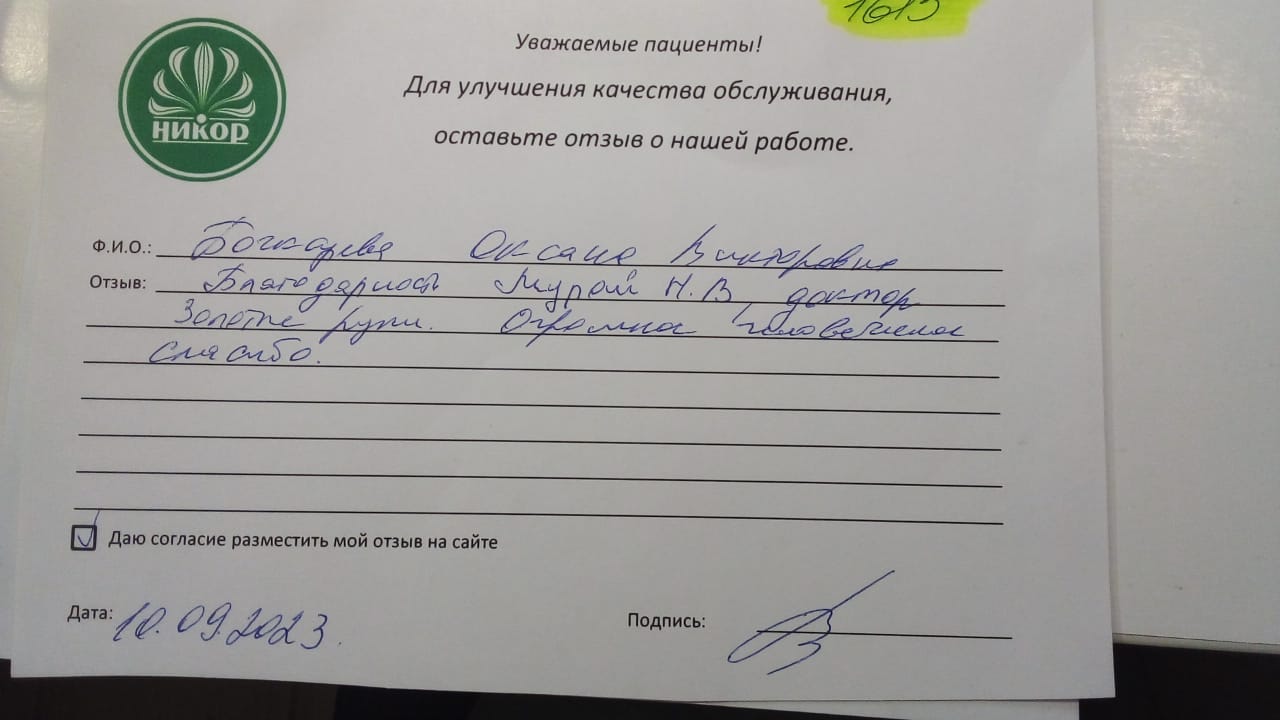 1613
Уважаемые пациенты!
Для улучшения качества обслуживания,
оставьте отзыв о нашей работе.
НИКОР
Ф.И.О.: Бочкарева Оксана Викторовна
Отзыв: Благодарность Мурой Н.В, доктор
Золотые руки. Огромное человеческое
спасибо.
Даю согласие разместить мой отзыв на сайте
Дата: 10.09.2023.
Подпись: